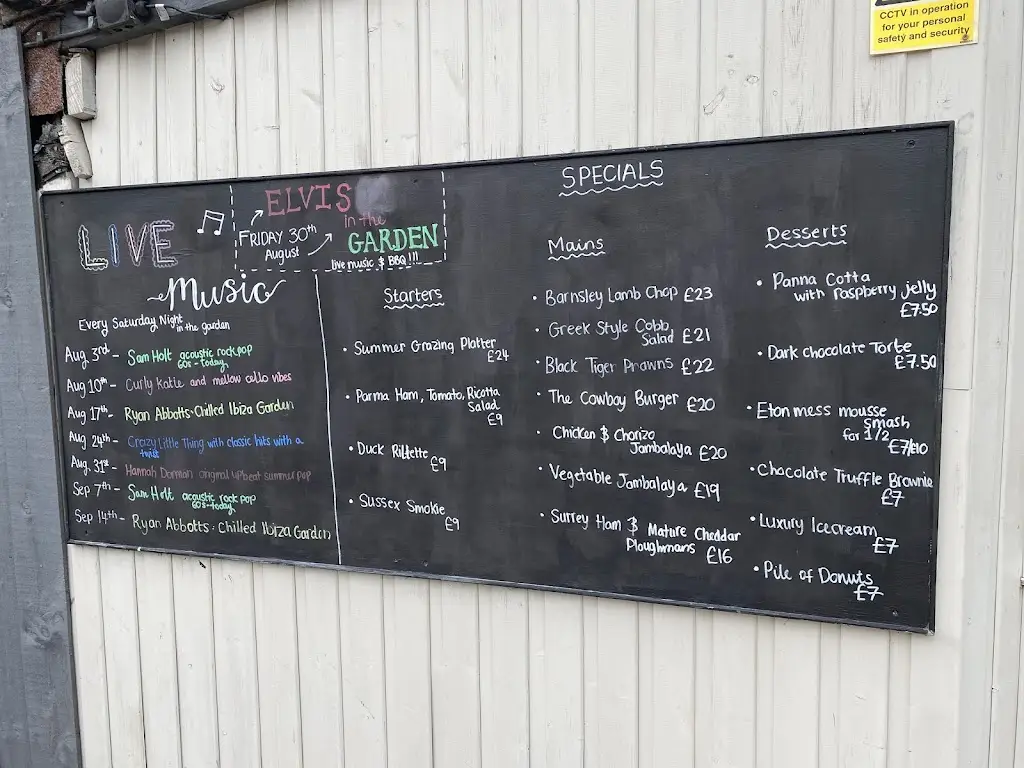 CCTV in operation
for your personal
safety and security
LIVE
Music
ELVIS
in the
GARDEN
FRIDAY 30th
August
live music & BBQ !!!
Every Saturday Night
in the garden
Aug 3rd - Sam Holt acoustic rock pop
60s - today
Aug 10th - Curly Katie and mellow cello vibes
Aug 17th - Ryan Abbotts - Chilled Ibiza Garden
Aug 24th - Crazy Little Thing with classic hits with a
twist
Aug 31st - Hannah Dorman original upbeat summer pop
Sep 7th - Sam Holt acoustic rock pop
60s - today
Sep 14th - Ryan Abbotts: Chilled Ibiza Garden
SPECIALS
Starters
• Summer Grazing Platter
£24
• Parma Ham, Tomato, Ricotta
Salad
£9
• Duck Rillette
£9
• Sussex Smokie
£9
Mains
• Barnsley Lamb Chop £23
• Greek Style Cobb
Salad £21
• Black Tiger Prawns £22
• The Cowboy Burger £20
• Chicken & Chorizo
Jambalaya £20
• Vegetable Jambalaya £19
• Surrey Ham & Mature Cheddar
Ploughmans £16
Desserts
• Panna Cotta
with raspberry jelly
£7.50
• Dark chocolate Torte
£7.50
• Eton mess mousse
smash
for 1/2 £7/£10
• Chocolate Truffle Brownie
£7
• Luxury Icecream
£7
• Pile of Donuts
£7